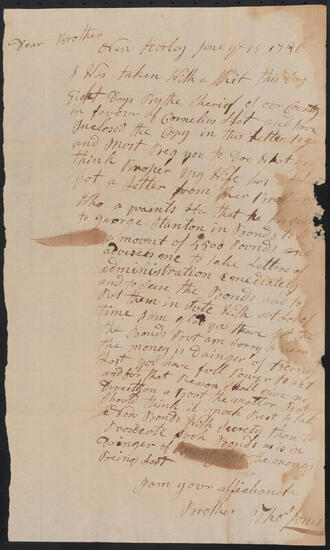 Dear Brother
New Hurley June ye 15 1786
I Was taken With a Writ this Day
Eight Days By the Sherief of our County
in favour of Cornelius and have
Inclosed the Copy in this Letter to you
and Most Beg you to Doe What you
think Proper my Wife has
got a Letter from Her Brother
Who a quaints Her that he has
to george Stanton in Bonds to
amount of 1500 Pounds and
advises me to take Letters of
administration Emedeately
and to Seve the Bonds and to
Put them in Sute With out Loss of
time I am glad you have got the
the Bonds But am Sorry to hear
the money is Dainger of Being
Lost you have full Power to act
and for that Reason I shall give no
Directtion a Bout the matter But
Should think it much Best to take
a Don Bonds With Surety then to
Prosecute Such Bonds as is in
Dainger of the money
Being Lost
I am your affectionate
Brother Thos Jones